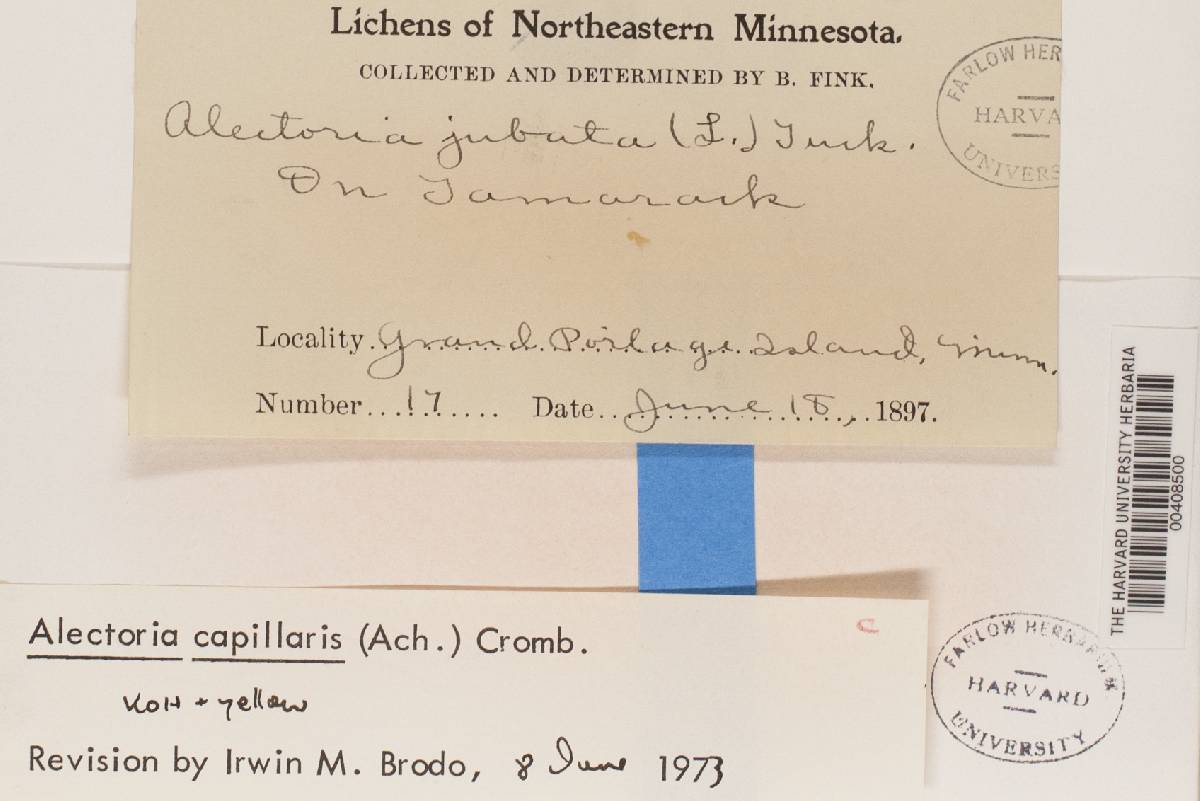 Lichens of Northeastern Minnesota.
COLLECTED AND DETERMINED BY B. FINK.
Alectoria jubata (L.) Tuck.
On Tamarack
Locality. Grand Portage Island, Minn.
Number...17.... Date..June 18, 1897.
FARLOW HER
HARVA
UNIVERS
THE HARVARD UNIVERSITY HERBARIA
00408500
Alectoria capillaris (Ach.) Cromb.
C
KOH + yellow
Revision by Irwin M. Brodo, 8 June 1973
FARLOW HERBARIUM
HARVARD
UNIVERSITY